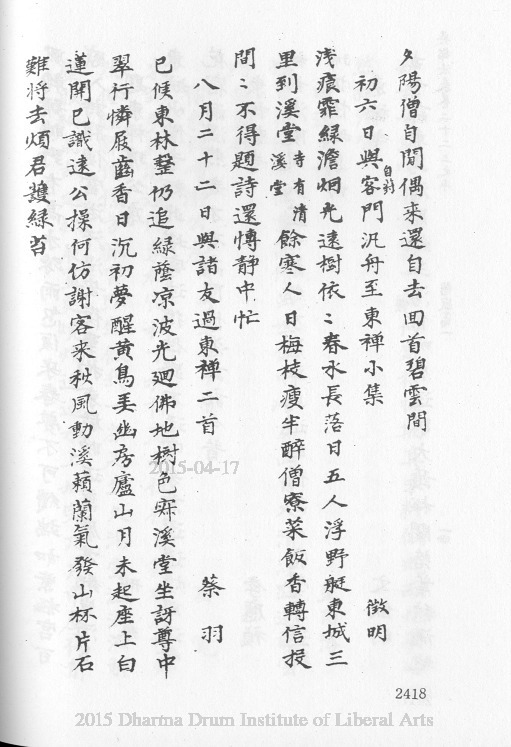 夕陽僧自閒偶來還自去回首碧雲間
初六日與客自葑門汎舟至東禅小集
徵明
浅痕霏綠澹烟光遠樹依〻春水長落日五人浮野艇東城三
里到溪堂寺有清溪堂餘寒人日梅枝瘦半醉僧寮菜飯香轉信投
間〻不得題詩還愽静中忙
八月二十二日與諸友過東禅二首
蔡羽
已候東林整仍追綠蔭凉波光廻佛地樹色寐溪堂坐訝尊中
翠行憐屐齒香日沉初夢醒黄鳥美幽房廬山月未起座上白
蓮開已識遠公操何仿謝客来秋風動溪籟蘭氣發山杯片石
難将去煩君護綠苔
2418
2015-04-17
2015 Dharma Drum Institute of Liberal Arts